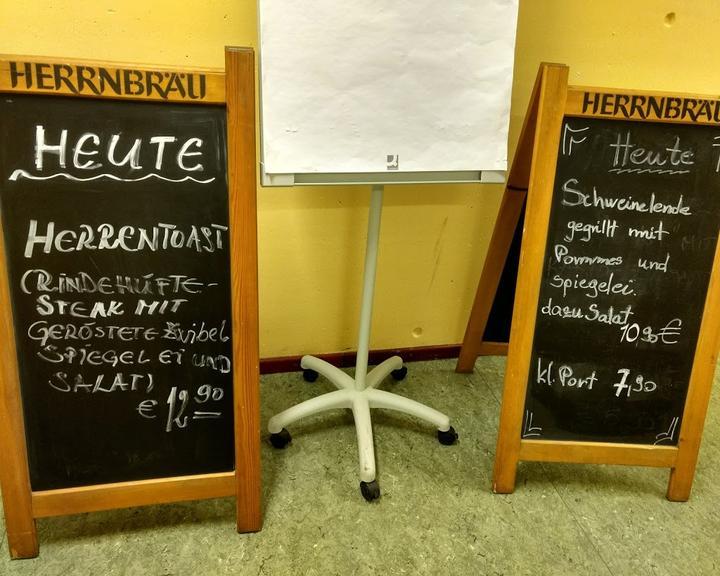 HERRNBRÄU
HEUTE
HERRENTOAST
(RINDEHÜFTE-
STEAK MIT
GERÖSTETE ZWIBEL
SPIEGEL EI UND
SALAT)
€ 12,90
HERRNBRÄU
Heute
Schweinelende
gegrillt mit
Pommes und
Spiegelei.
dazu Salat
10,90€
kl. Port 7,90